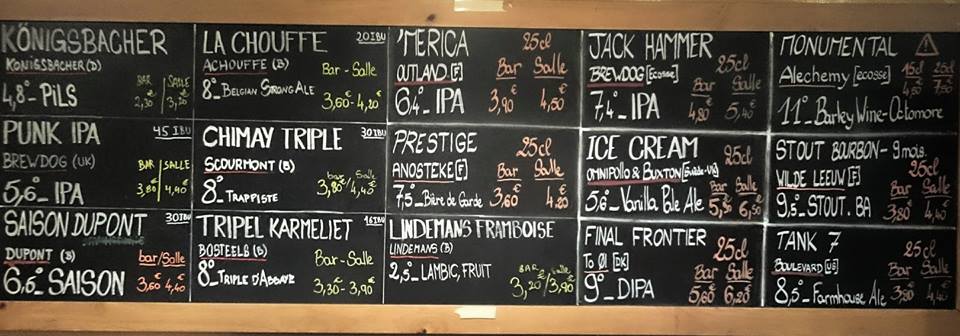 KÖNIGSBACHER
KÖNIGSBACHER (D)
BAR | SALLE
4,8°_ PiLS 2,30 | 3,20
LA CHOUFFE 20 IBU
ACHOUFFE (B) Bar - Salle
8°_ BELGIAN STRONG ALE 3,60 - 4,20
'MERICA 25cl
OUTLAND [F] Bar Salle
6,4°_ IPA 3,90 4,50
JACK HAMMER 25cl
BREWDOG [ECOSSE] Bar Salle
7,4°_ IPA 4,80 5,40
MONUMENTAL
Alechemy [ECOSSE] 15cl 25cl
4,50 7,50
11°_ Barley Wine-Octomore
PUNK IPA 45 IBU
BREWDOG (UK) BAR | SALLE
5,6°_ IPA 3,80 | 4,40
CHIMAY TRIPLE 30 IBU
SCOURMONT (B) bar/Salle
8°_ TRAPPISTE 3,80/4,40
PRESTIGE 25cl
ANOSTEKE [F] Bar Salle
7,5°_ Bière de Garde 3,60 4,20
ICE CREAM 25cl
OMNIPOLLO & BUXTON Bar Salle
5,6°_ Vanilla Pale Ale 5,90 6,50
STOUT BOURBON - 9 mois.
WILDE LEEUW [F] 25cl
Bar Salle
9,5°_ STOUT. BA 3,80 4,40
SAISON DUPONT 30 IBU
DUPONT (B) bar/Salle
6,5°_ SAISON 3,60 4,40
TRIPEL KARMELIET 16 IBU
BOSTEELS (B) Bar - Salle
8°_ TRIPLE D'ABBAYE 3,30 - 3,90
LINDEMANS FRAMBOISE
LINDEMANS (B) BAR Salle
2,5°_ LAMBIC, FRUIT 3,20/3,90
FINAL FRONTIER 25cl
TO Øl [DK] Bar Salle
9°_ DIPA 5,60 6,20
TANK 7 25cl
BOULEVARD [US] Bar Salle
8,5°_ Farmhouse Ale 3,80 4,40